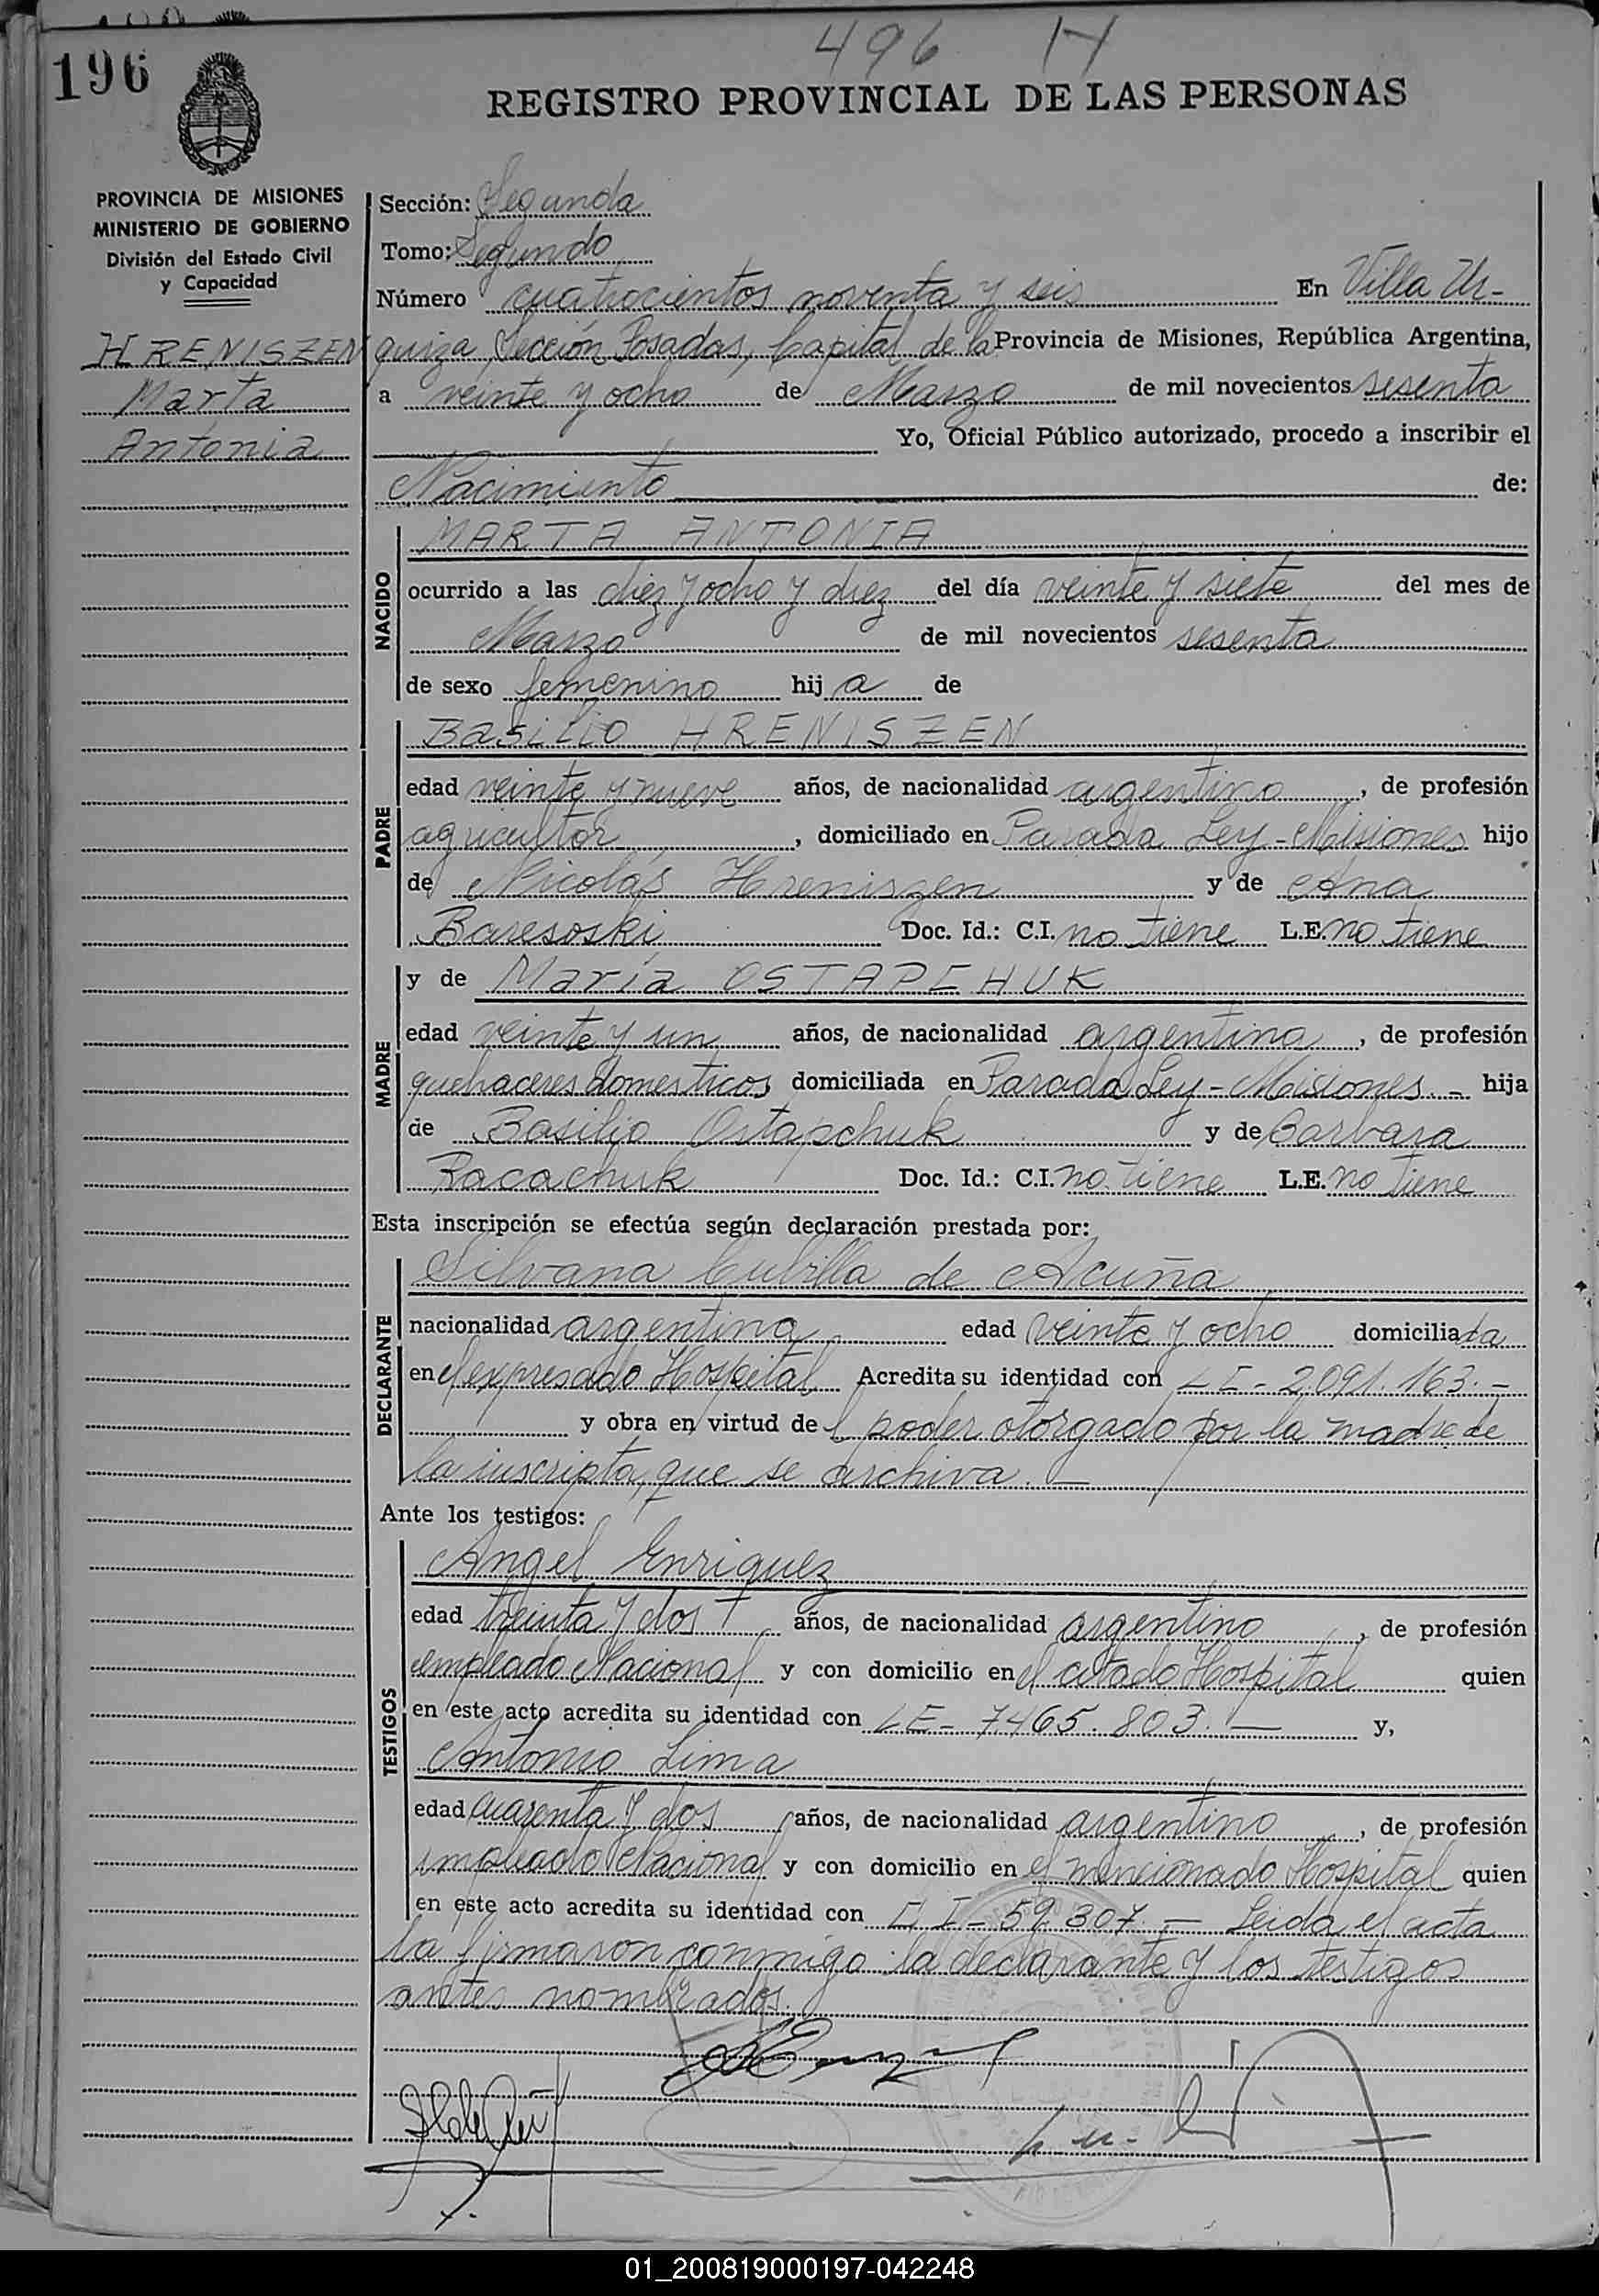 496 H
196
REGISTRO PROVINCIAL DE LAS PERSONAS
PROVINCIA DE MISIONES
MINISTERIO DE GOBIERNO
División del Estado Civil
y Capacidad
HRENISZEN
Marta
Antonia
Sección: Segunda
Tomo: Segundo
Número cuatrocientos noventa y seis En Villa Ur-
quiza, Sección Posadas, Capital de la Provincia de Misiones, República Argentina,
a veinte y ocho de Marzo de mil novecientos sesenta
Yo, Oficial Público autorizado, procedo a inscribir el
Nacimiento de:
NACIDO
MARTA ANTONIA
ocurrido a las diez y ocho y diez del día veinte y siete del mes de
Marzo de mil novecientos sesenta
de sexo femenino hija de
PADRE
Basilio HRENISZEN
edad veinte y nueve años, de nacionalidad argentino, de profesión
agricultor, domiciliado en Parada Ley - Misiones hijo
de Nicolás Hreniszen y de Ana
Baresoski Doc. Id.: C.I. no tiene L.E. no tiene
MADRE
y de María OSTAPCHUK
edad veinte y un años, de nacionalidad argentina, de profesión
quehaceres domesticos domiciliada en Parada Ley - Misiones.- hija
de Basilio Ostapchuk y de Barbara
Racachuk Doc. Id.: C.I. no tiene L.E. no tiene
Esta inscripción se efectúa según declaración prestada por:
DECLARANTE
Silvana Cubilla de Acuña
nacionalidad argentina edad veinte y ocho domiciliada
en el expresado Hospital Acredita su identidad con 2.091.163.-
y obra en virtud del poder otorgado por la madre de
la inscripta, que se archiva.-
Ante los testigos:
TESTIGOS
Angel Enriquez
edad treinta y dos años, de nacionalidad argentino, de profesión
empleado Nacional y con domicilio en el citado Hospital quien
en este acto acredita su identidad con LE- 7.465.803.- y,
Antonio Lima
edad cuarenta y dos años, de nacionalidad argentino, de profesión
empleado Nacional y con domicilio en el mencionado Hospital quien
en este acto acredita su identidad con C.I- 59.307.- Leida el acta
la firmaron conmigo la declarante y los testigos
antes nombrados.
01_200819000197-042248